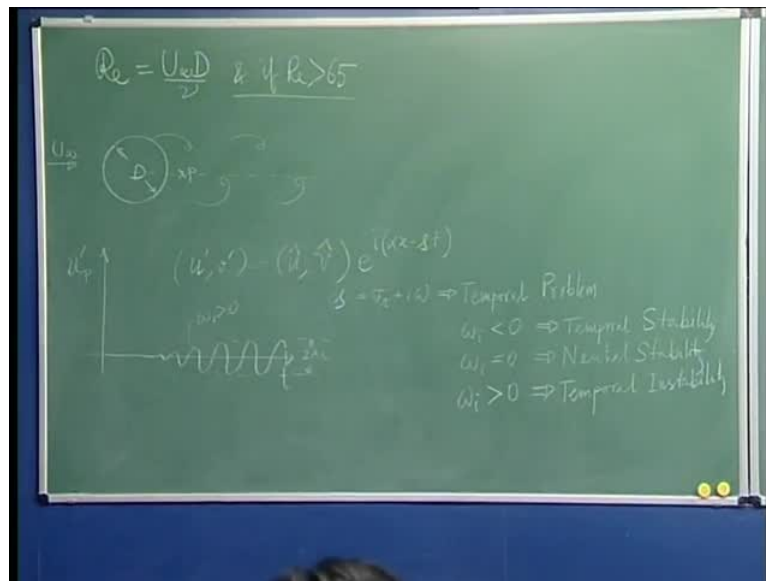 Re = U∞D/ν & if Re>65
U∞
D xP
u'p
(u', v') = (û, v̂) e^i(αx-st)
⇒ Temporal Problem
ωi>0
ωi < 0 ⇒ Temporal Stability
ωi = 0 ⇒ Neutral Stability
ωi > 0 ⇒ Temporal Instability